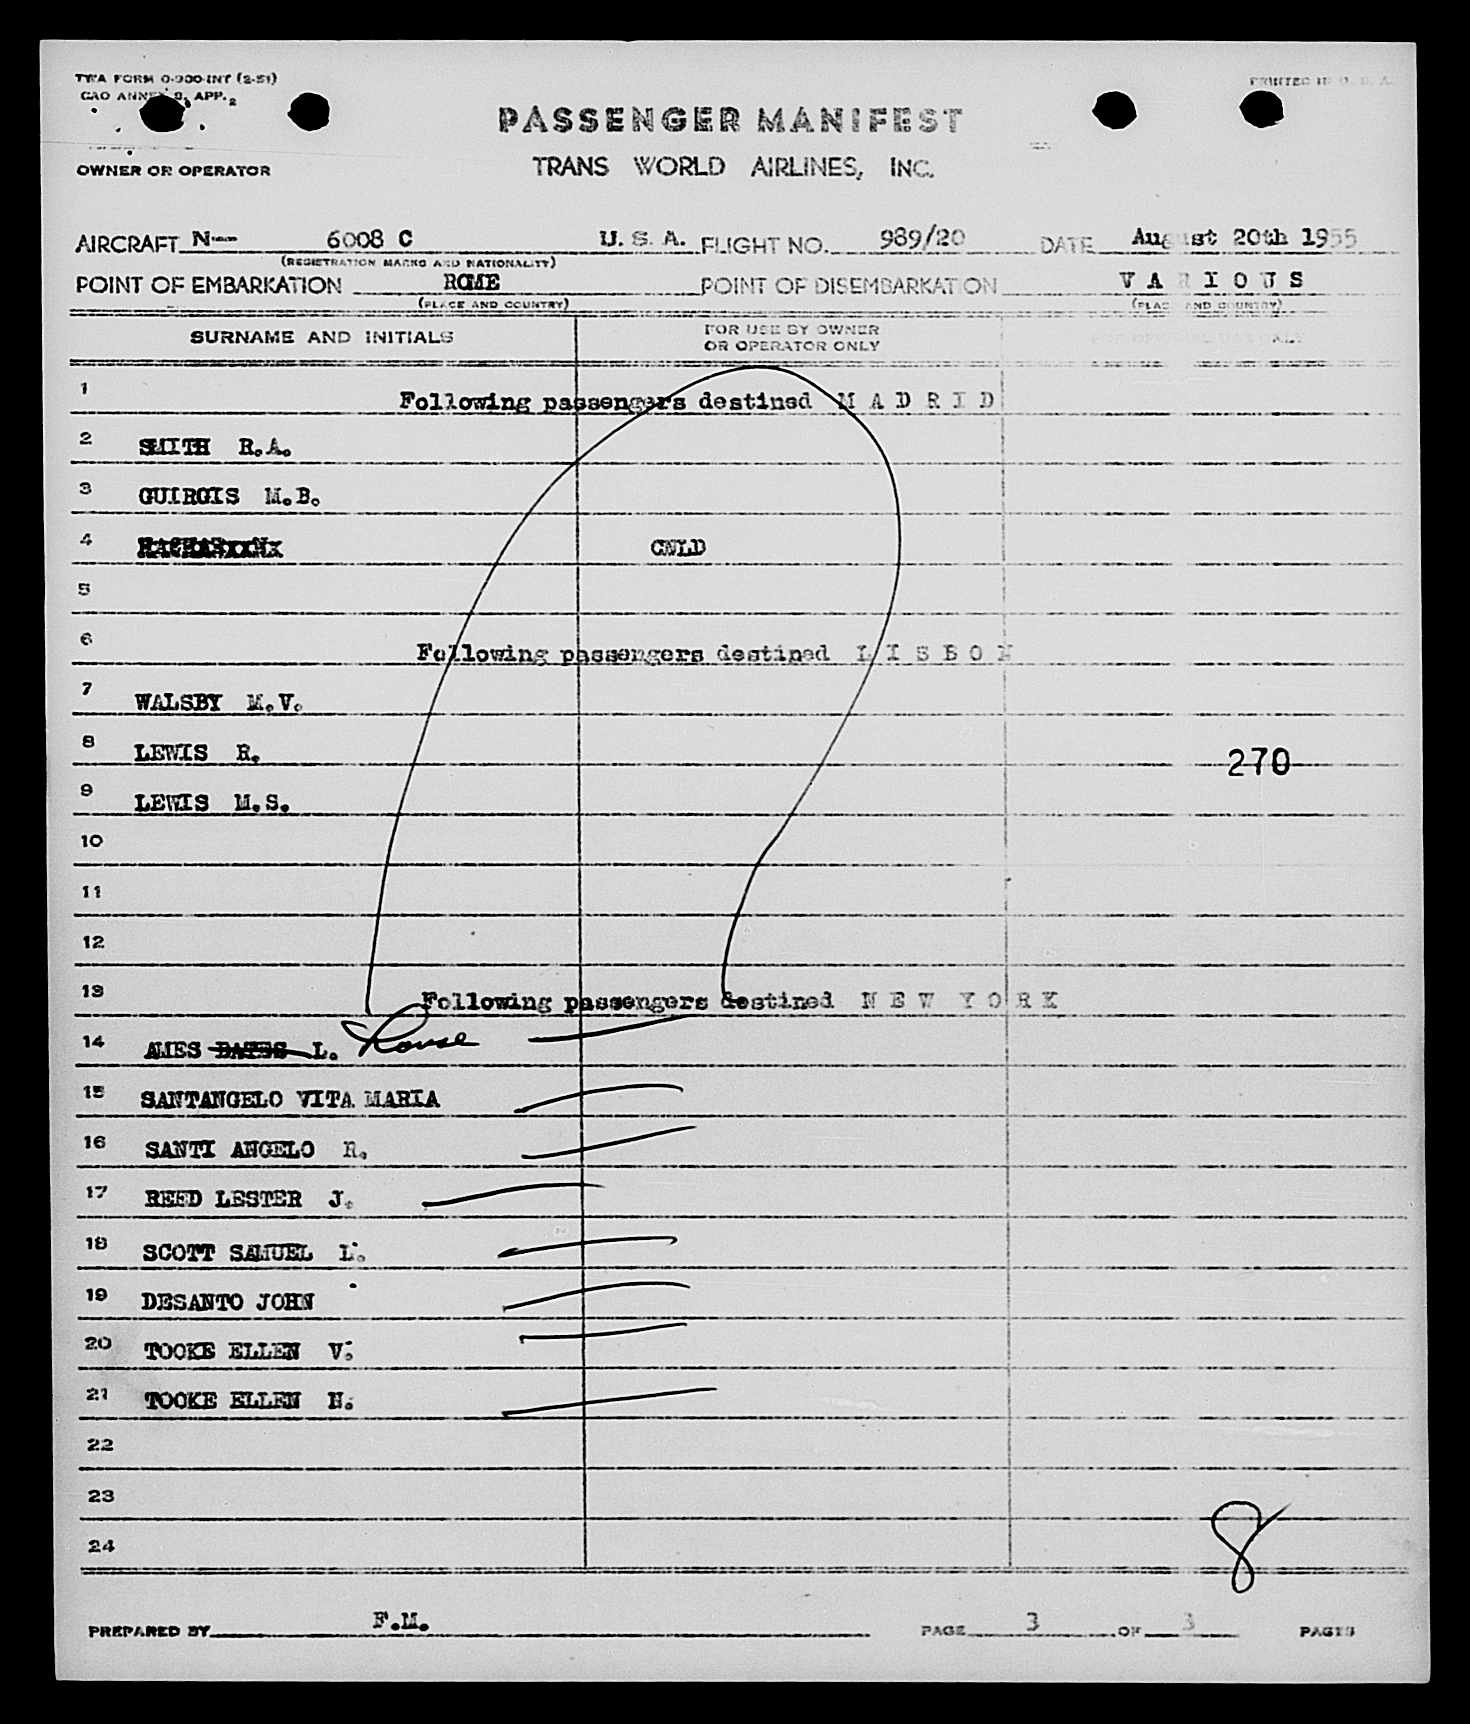 TWA FORM 0-900-INT (2-51)
CAO ANNEX 9, APP. 2
PRINTED IN U. S. A.
PASSENGER MANIFEST
OWNER OR OPERATOR
TRANS WORLD AIRLINES, INC.
AIRCRAFT N-- 6008 C U. S. A. FLIGHT NO. 989/20 DATE August 20th 1955
(REGISTRATION MARKS AND NATIONALITY)
POINT OF EMBARKATION ROME POINT OF DISEMBARKATION V A R I O U S
(PLACE AND COUNTRY) (PLACE AND COUNTRY)
SURNAME AND INITIALS FOR USE BY OWNER OR OPERATOR ONLY FOR OFFICIAL USE ONLY
1 Following passengers destined M A D R I D
2 SMITH R.A.
3 GUIRGIS M.B.
4 CNLD
5
6 Following passengers destined L I S B O N
7 WALSBY M.V.
8 LEWIS R.
270
9 LEWIS M.S.
10
11
12
13 Following passengers destined N E W Y O R K
14 AMES BATES L. Rouse
15 SANTANGELO VITA MARIA
16 SANTI ANGELO R.
17 REED LESTER J.
18 SCOTT SAMUEL L.
19 DESANTO JOHN
20 TOOKE ELLEN V.
21 TOOKE ELLEN H.
22
23
24
8
PREPARED BY F.M. PAGE 3 OF 3 PAGES